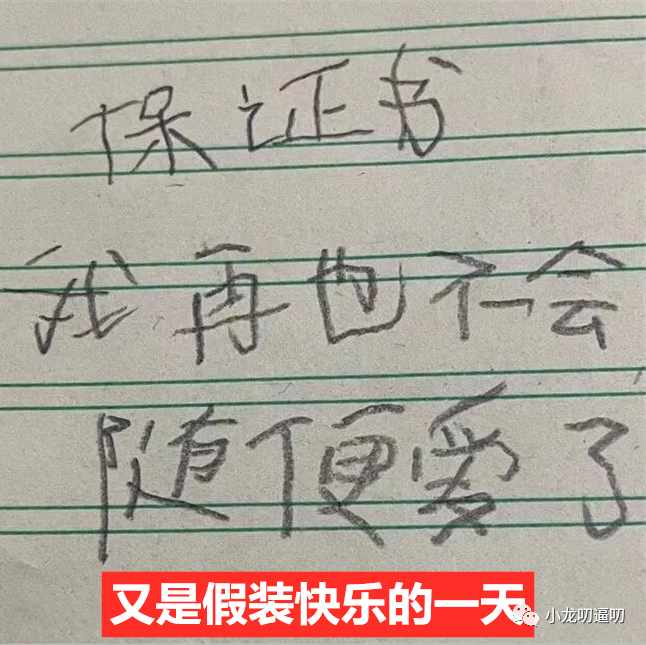 保证书
我再也不会
随便爱了
又是假装快乐的一天
小龙叨逼叨